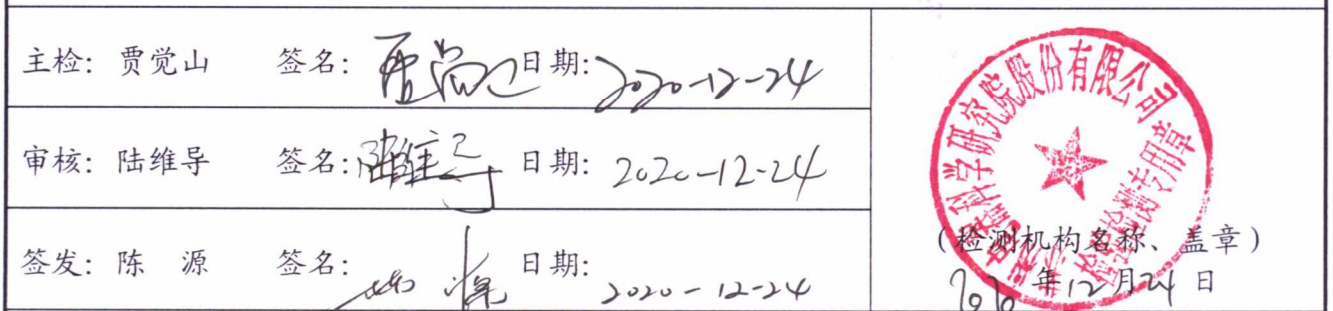 主检: 贾觉山 签名: 日期: 2020-12-24
审核: 陆维导 签名: 陆维导 日期: 2020-12-24
签发: 陈 源 签名: 日期: 2020-12-24
科学研究院股份有限公司
检验检测专用章
(检测机构名称、盖章)
2020年12月24日